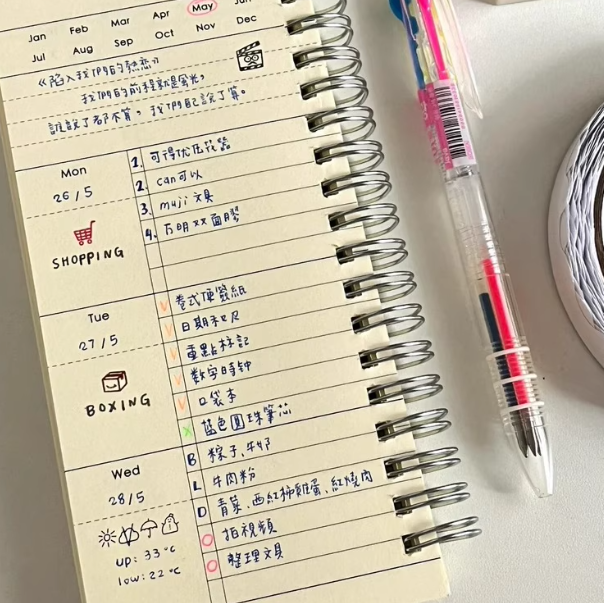 Jan Feb Mar Apr May Jun
Jul Aug Sep Oct Nov Dec
《陷入我們的熱戀》
我們的前程就是蜜光,
誰說了都不算,我們自己說了算。
Mon
26/5
SHOPPING
1. 可得优压花器
2. can可以
3. muji 文具
4. 万明双面膠
Tue
27/5
BOXING
卷式便簽紙
日期和尺
重點标記
数字時钟
口袋本
x 藍色圓珠筆芯
Wed
28/5
up: 33°C
low: 22°C
B 粽子、牛奶
L 牛肉粉
D 青菜、西紅柿雞蛋、紅燒肉
拍視頻
整理文具